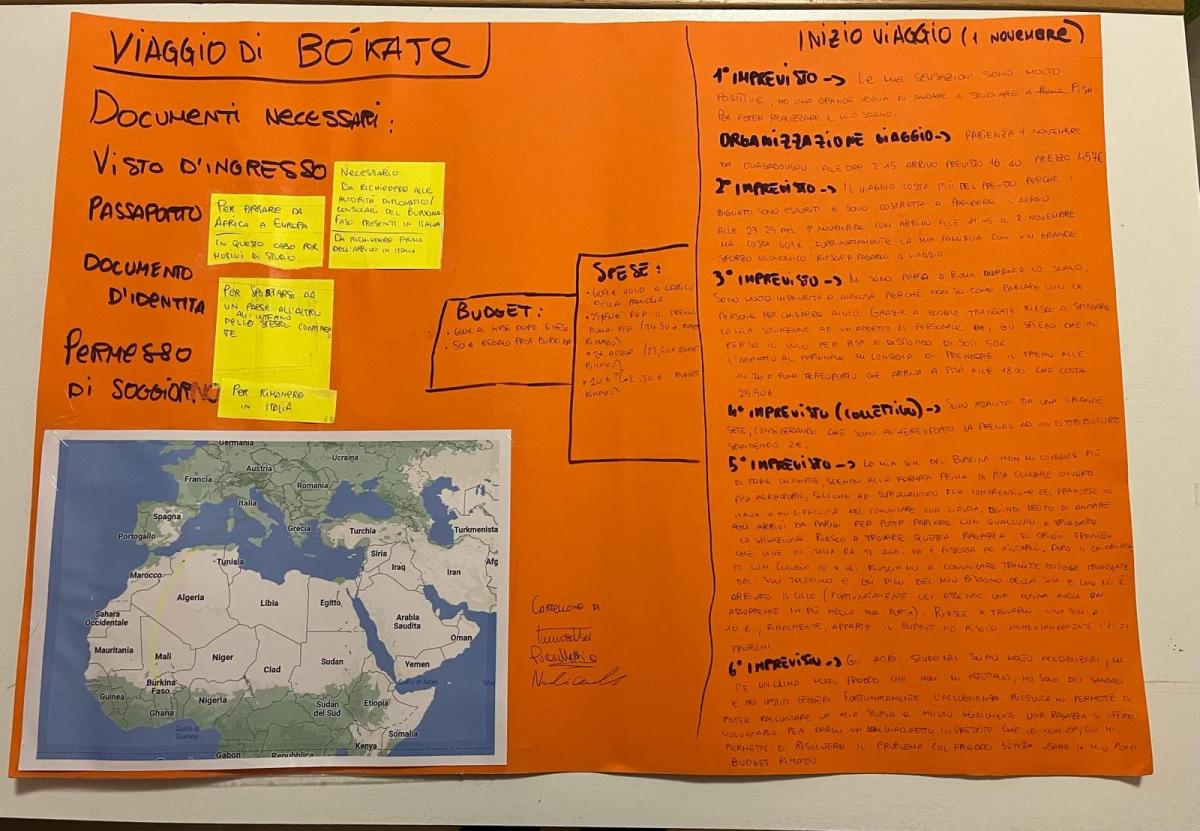 VIAGGIO DI BÓKATE
DOCUMENTI NECESSARI:
VISTO D'INGRESSO
NECESSARIO.
DA RICHIEDERE ALLE
AUTORITÀ DIPLOMATICO/
CONSOLARI DEL BURKINA
FASO PRESENTI IN ITALIA
DA RICHIEDERE PRIMA
DELL'ARRIVO IN ITALIA.
PASSAPORTO
PER PASSARE DA
AFRICA A EUROPA
IN QUESTO CASO PER
MOTIVI DI STUDIO.
DOCUMENTO
D'IDENTITA
PER SPOSTARSI DA
UN PAESE ALL'ALTRO
ALL'INTERNO
DELLO STESSO CONTINEN
TE
PERMESSO
DI SOGGIORNO
PER RIMANERE
IN ITALIA
Germania
Ucraina
Austria
Francia
Romania
Italia
Spagna
Portogallo
Grecia
Turchia
Turkmenista
Tunisia
Siria
Iraq
Iran
Afg
Marocco
Algeria
Libia
Egitto
Sahara
Occidentale
Arabia
Saudita
Oman
Mauritania
Mali
Niger
Ciad
Sudan
Yemen
Golfo di Aden
Burkina
Faso
Guinea
Ghana
Nigeria
Sudan
del Sud
Etiopia
Somalia
Golfo di
Guinea
Kenya
Gabon
Repubblica
BUDGET:
50 € REGALO PROF BURKINA
SPESE:
609€ VOLO A CARICO
DELLA FAMIGLIA
25,50€ PER IL TRENO
ROMA-PISA (24,50€
RIMASTI)
2€ ACQUA (22,50€ BUDGET
RIMASTI)
10€ 2,50€ BUDGET
RIMASTI)
CARTELLONE DI:
INIZIO VIAGGIO (1 NOVEMBRE)
1° IMPREVISTO -> LE MIE SENSAZIONI SONO MOLTO
POSITIVE, HO UNA GRANDE VOGLIA DI ANDARE A STUDIARE A ROMA PISA
PER POTER REALIZZARE IL MIO SOGNO.
ORGANIZZAZIONE VIAGGIO-> PARTENZA 1 NOVEMBRE
DA OUAGADOUGOU ALLE ORE 2:15 ARRIVO PREVISTO 16 40 PREZZO 457€
2° IMPREVISTO -> IL VIAGGIO COSTA PIÙ DEL PREVISTO PERCHÉ I
BIGLIETTI SONO ESAURITI E SONO COSTRETTA A PRENDERE L'AEREO
ALLE 23:25 DEL 1° NOVEMBRE CON ARRIVO ALLE 11:45 IL 2 NOVEMBRE
MA COSTA 609€, FORTUNATAMENTE LA MIA FAMIGLIA CON UN GRANDE
SFORZO ECONOMICO RIESCE A PAGARMI IL VIAGGIO
3° IMPREVISTO -> MI SONO PERSA A ROMA DURANTE LO SCALO,
SONO MOLTO IMPAURITA E ANSIOSA PERCHÉ NON SO COME PARLARE CON LE
PERSONE PER CHIEDERE AIUTO. GRAZIE A GOOGLE TRANSLATE RIESCO A SPIEGARE
LA MIA SITUAZIONE AD UN ADDETTO AL PERSONALE, GLI SPIEGO CHE HO
PERSO IL VOLO PER PISA E DISPONGO DI SOLI 50€
L'ADDETTO AL PERSONALE MI CONSIGLIA DI PRENDERE IL TRENO ALLE
14:20 A ROMA AEREOPORTO CHE ARRIVA A PISA ALLE 18:00 CHE COSTA
25.50€
4° IMPREVISTO (COLLETTIVO)-> SONO ASSALITA DA UNA GRANDE
SETE, CONSIDERANDO CHE SONO ALL'AEREOPORTO LA PRENDO AD UN DISTRIBUTORE
SPENDENDO 2€.
5° IMPREVISTO -> LA MIA SIM DEL BURKINA NON MI CONSENTE PIÙ
DI FARE CHIAMATE, SCENDO ALLA FERMATA PRIMA DI PISA CENTRALE OVVERO
PISA AEREOPORTO, SICCOME HO SOPRAVALUTATO LA COMPRENSIONE DEL FRANCESE IN
ITALIA E HO DIFFICOLTÀ NEL COMUNICARE CON CLAUDIA, QUINDI DECIDO DI ANDARE
AGLI ARRIVI DA PARIGI PER POTER PARLARE CON QUALCUNO E SPIEGARE
LA SITUAZIONE. RIESCO A TROVARE QUESTA RAGAZZA DI ORIGINI FRANCESI
CHE VIVE IN ITALIA DA 12 ANNI ED È DISPOSTA AD AIUTARMI. DOPO IL CHIARIMEN
TO CON CLAUDIA IO E LEI RIUSCIAMO A COMUNICARE TRAMITE GOOGLE TRANSLATE
DAL SUO TELEFONO E GLI DICO DEL MIO BISOGNO DELLA SIM E CHE MI È
ARRIVATO IL CICLO (FORTUNATAMENTE LEI ESSENDO UNA DONNA AVEVA UN
ASSORBENTE IN PIÙ NELLA SUA BORSA). RIESCE A TROVARMI UNA SIM A
10 €, FINALMENTE, APPARTE IL BUDGET, HO RISOLTO MOMENTANEAMENTE I MIEI
PROBLEMI.
6° IMPREVISTO -> GLI ALTRI STUDENTI SONO MOLTO ACCOGLIENTI, MA
C'È UN CLIMA MOLTO FREDDO CHE NON MI ASPETTAVO, HO SOLO DEI SANDALI
E DEI VESTITI LEGGERI. FORTUNATAMENTE L'ACCOGLIENZA RICEVUTA MI PERMETTE DI
POTER RACCONTARE LA MIA STORIA E MOLTO GENTILMENTE UNA RAGAZZA SI OFFRE
VOLONTARIA PER DARMI UN GIACCHETTO IN PRESTITO CHE LEI NON USA, CIÒ MI
PERMETTE DI RISOLVERE IL PROBLEMA COL FREDDO SENZA USARE IL MIO POCO
BUDGET RIMASTO